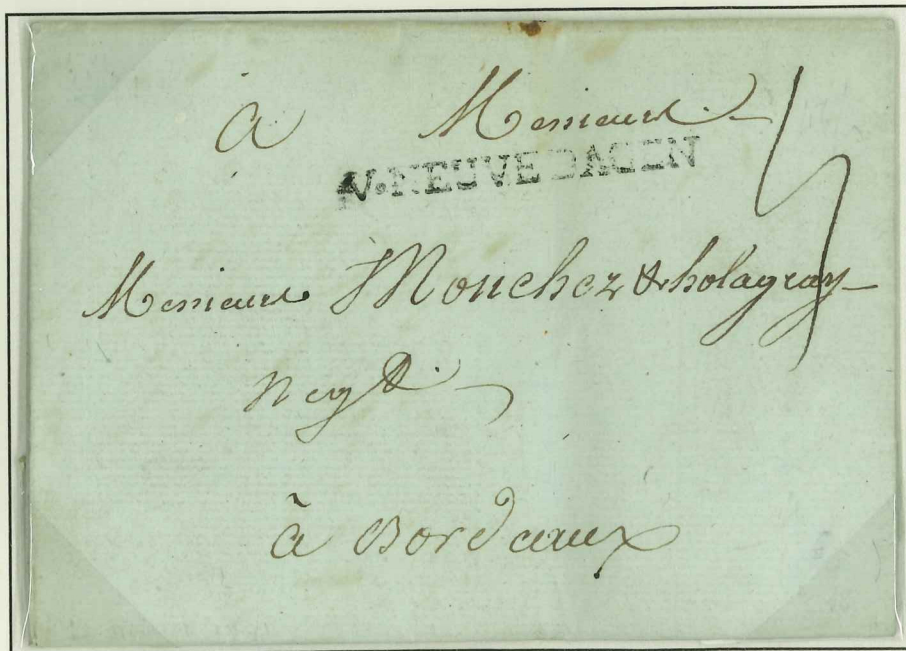 à Messieurs
V.NEUVE DAGEN
Messieurs Mouchez & holagray
Negt
à Bordeaux